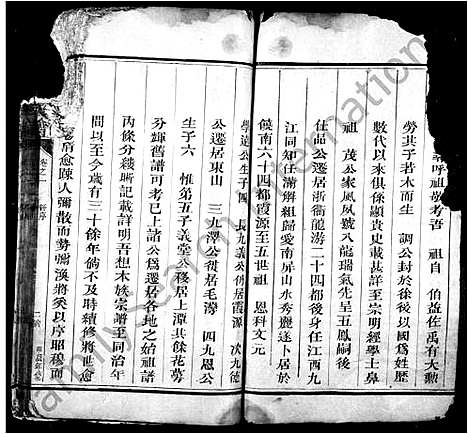 嗚呼祖敬考吾　祖自　伯益佐禹有大勲
勞其子若木而生　調公封於徐後以國爲姓歷
數代以來俱係顯貴史載甚詳至宗明經學士鼻
祖　茂公家鳳夙號入龍瑞氣先呈五鳳嗣後
仕品公遷居浙衢龍游二十四都後身任江西九
江同知任滿解組歸愛南屏山水秀麗遂卜居於
饒南六十四都霞源至五世祖　恩科文元
學遠公生子四　長九義公傳居霞源　次九德
公遷居東山　三九澤公徙居毛灣　四九恩公
生子六　惟第五子義堂公移居上潭其餘花萼
分輝舊譜可考巳上諸公爲遷居各地之始祖譜
內條分縷晰記載詳明吾想本族宗譜至同治年
間以至今歲有三十餘年倘不及時續修將世愈
遠肖愈踈人彌散而勢彌渙將奚以序昭穆而
卷之一
FamilySearch International